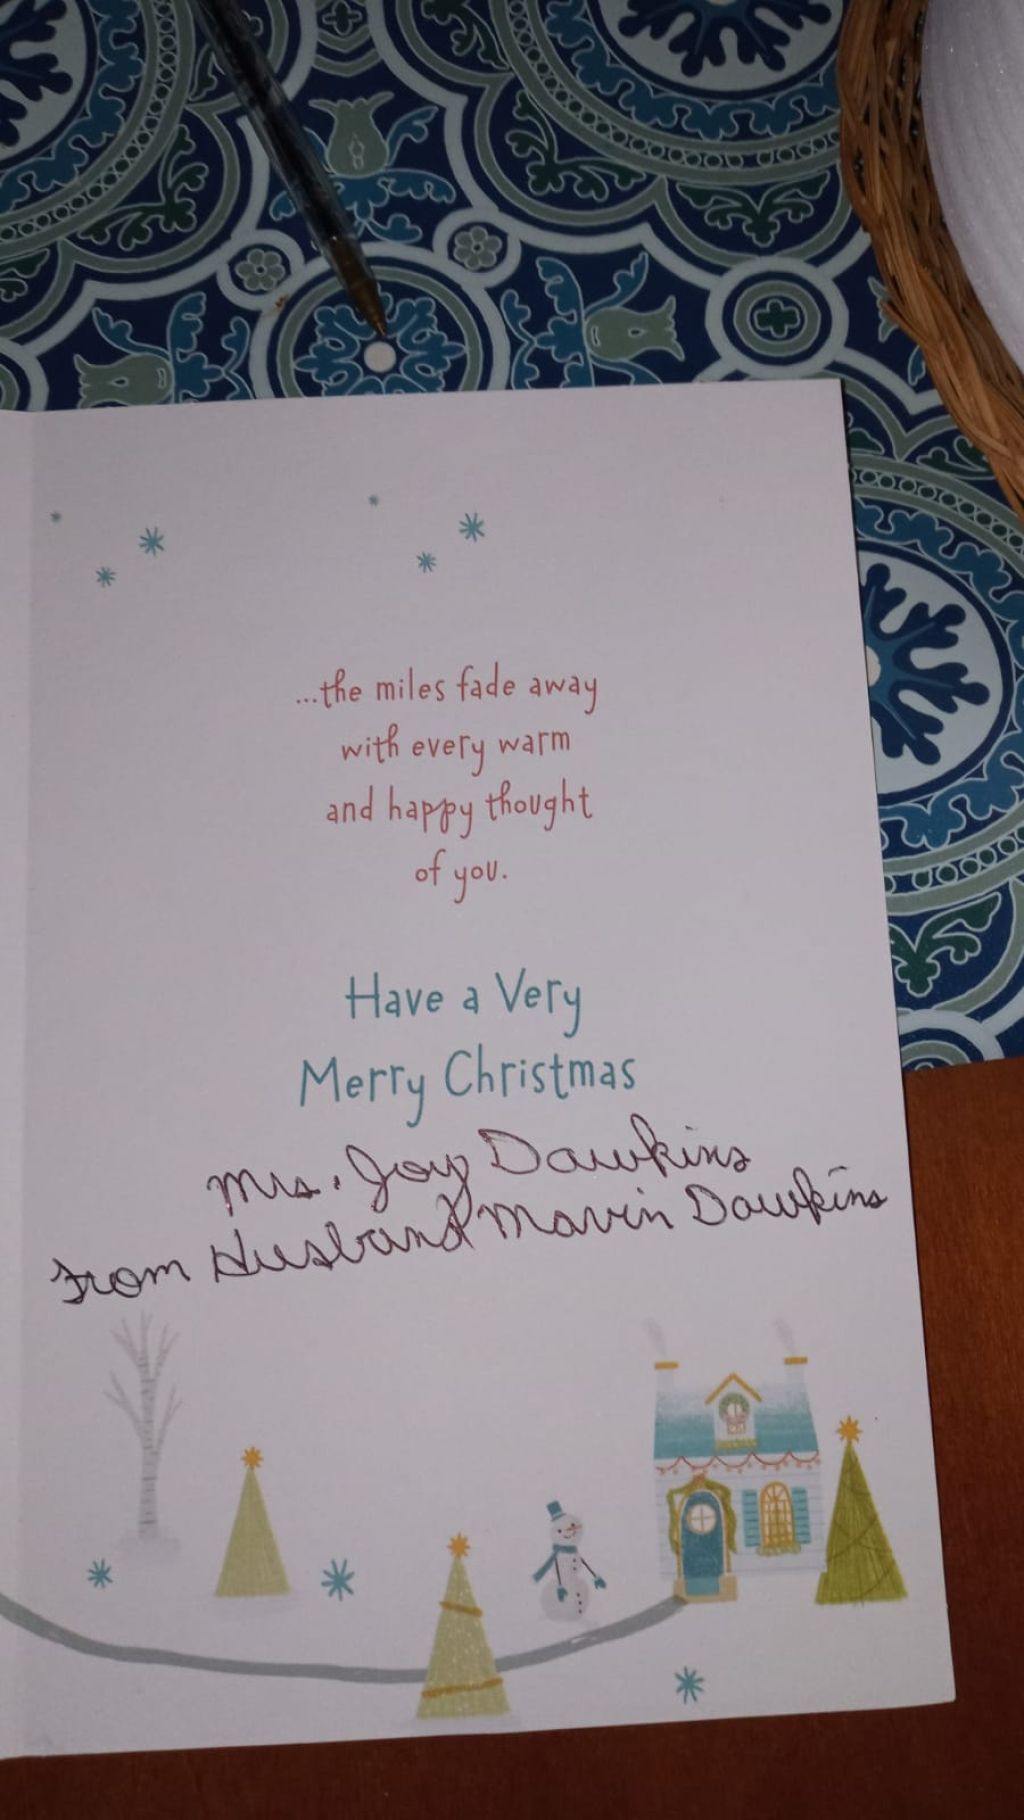 ...the miles fade away
with every warm
and happy thought
of you.
Have a Very
Merry Christmas
Mrs. Joy Dawkins
From Husband Mavin Dawkins